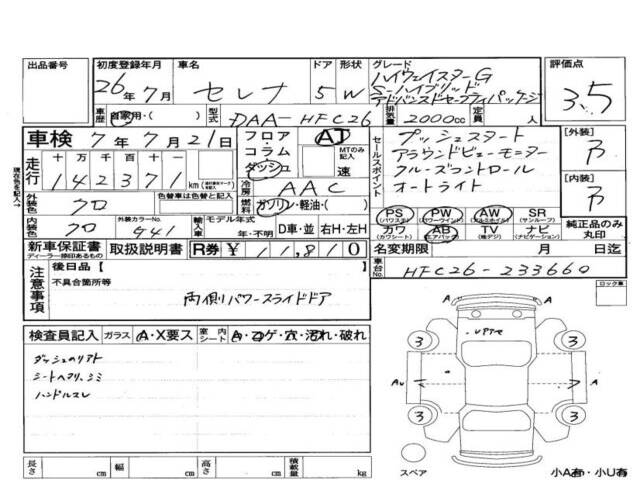 出品番号
初度登録年月
26年7月
車名
セレナ
ドア
5
形状
W
グレード
ハイウェイスターG
S-ハイブリッド
アドバンスドセーフティパッケージ
評価点
3.5
車歴
自家用・( )
型式
DAA-HFC26
排気量
2000cc
定員
人
車検 7年7月21日
フロア・コラム
ダッシュ
AT
MTのみ記入
速
セールスポイント
プッシュスタート
アラウンドビューモニター
クルーズコントロール
オートライト
【外装】
【内装】
現在色を記入→
走行
十 万 千 百 十 一
142371
km
冷房
AAC
燃料
ガソリン・軽油・( )
外装色
クロ
色替車は色替と記入
内装色
クロ
外装カラーNo.
G41
輸入車
モデル年式
年・不明
D車・並
右H・左H
PS (パワステ)
PW (パワーウインド)
AW (アルミホイル)
SR (サンルーフ)
カワ (カワシート)
AB (エアバッグ)
TV (地デジ)
ナビ (ナビゲーション)
純正品のみ丸印
新車保証書
ディーラー捺印あるもの
取扱説明書
R券 ¥11,810
名変期限 月 日迄
車台No.
HFC26-233660
注意事項
後日品【 】
不具合箇所等
両側パワースライドドア
ロック車
検査員記入
ガラス
A・X要ス
室内シート
A・コゲ・穴・汚れ・破れ
ハンドルスレ
3
3
A
A
3
3
スペア
小A有・小U有
長さ cm
幅 cm
高さ cm
積載量 kg